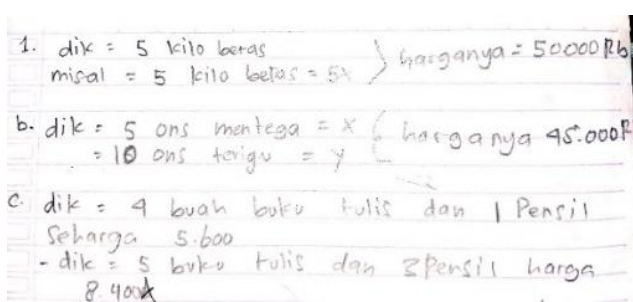 1. dik = 5 kilo beras
misal = 5 kilo beras = 5x } harganya = 50000 Rb
b. dik = 5 ons mentega = x { harganya 45.000 R
= 10 ons terigu = y
c. dik = 4 buah buku tulis dan 1 Pensil
Seharga 5.600
- dik = 5 buku tulis dan 3 Pensil harga
8.400